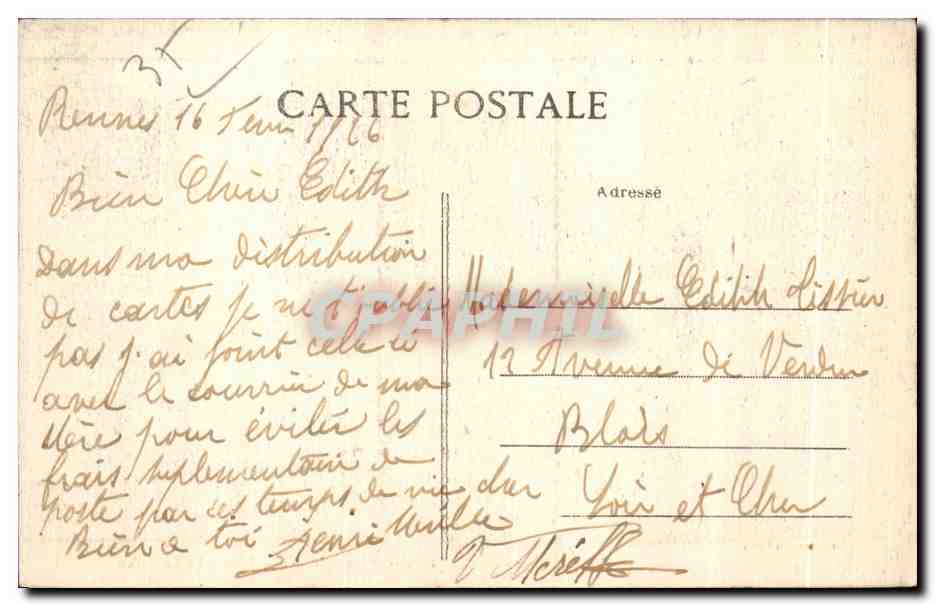 37
CARTE POSTALE
Rennes 16
Bien Chère Edith
Adressé
Dans ma distribution
de cartes je ne t'oublie
pas j'ai joint celle ci
avec le courrier de ma
Mère pour éviter les
frais suplementair de
poste par ces temps de vie cher
Bien a toi Henri
Mademoiselle Edith Tissier
12 Avenue de Verdun
Blois
Loir et Cher
CPAPHIL